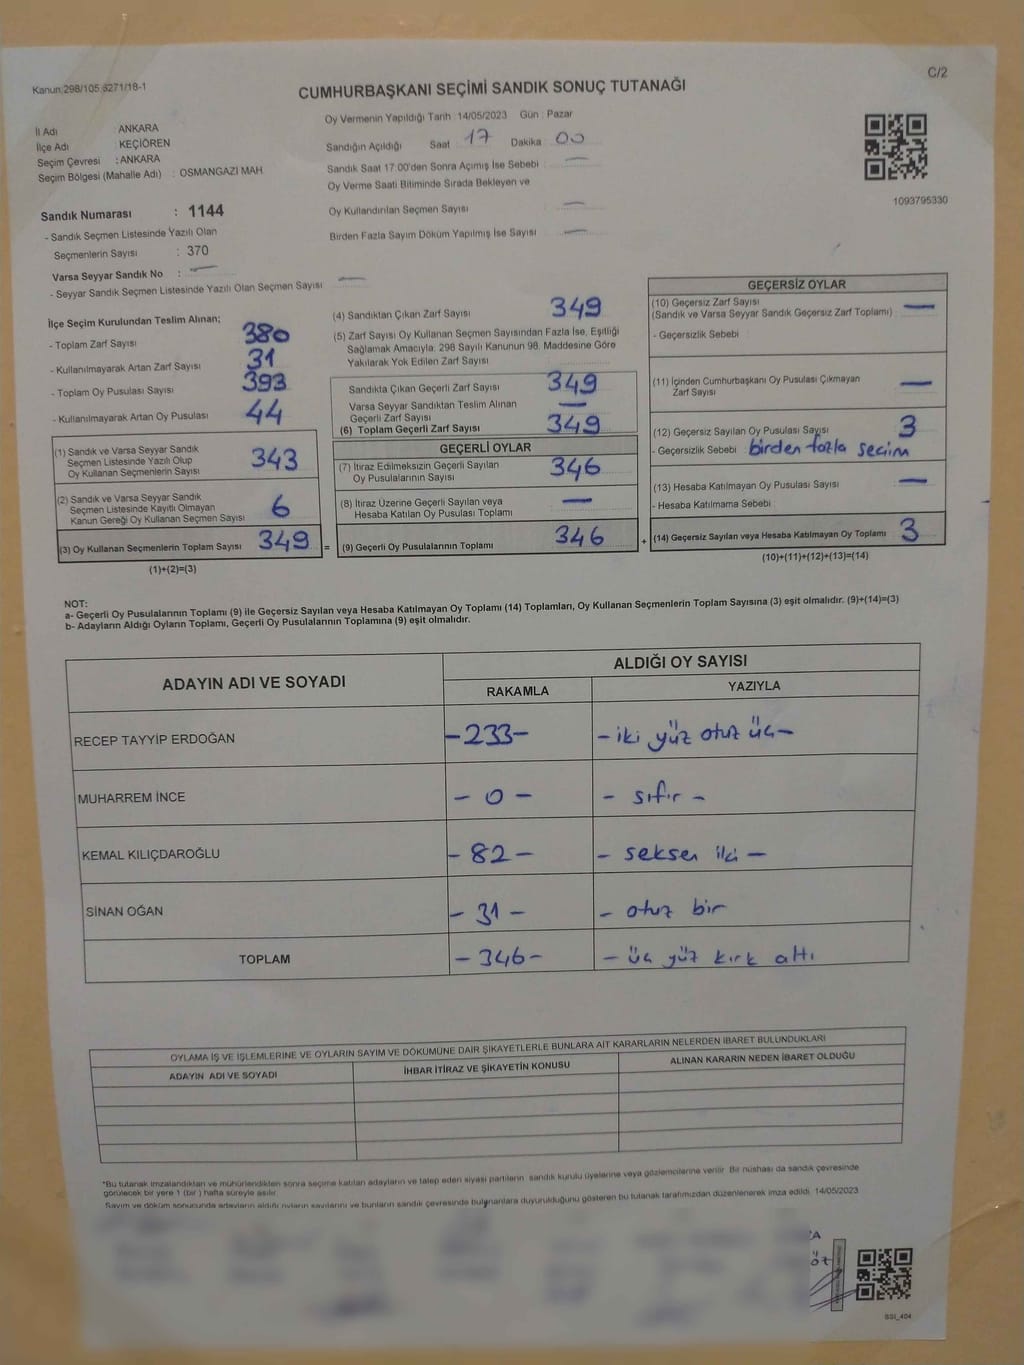 C/2
Kanun.298/105,6271/18-1
CUMHURBAŞKANI SEÇİMİ SANDIK SONUÇ TUTANAĞI
İl Adı : ANKARA
İlçe Adı : KEÇİÖREN
Seçim Çevresi : ANKARA
Seçim Bölgesi (Mahalle Adı) : OSMANGAZİ MAH
Oy Vermenin Yapıldığı Tarih 14/05/2023 Gün : Pazar
Sandığın Açıldığı Saat 17 Dakika 00
Sandık Saat 17:00'den Sonra Açımış İse Sebebi : —
Oy Verme Saati Bitiminde Sırada Bekleyen ve
Oy Kullandırılan Seçmen Sayısı : —
Birden Fazla Sayım Döküm Yapılmış İse Sayısı : —
1093795330
Sandık Numarası : 1144
- Sandık Seçmen Listesinde Yazılı Olan
Seçmenlerin Sayısı : 370
Varsa Seyyar Sandık No : —
- Seyyar Sandık Seçmen Listesinde Yazılı Olan Seçmen Sayısı : —
İlçe Seçim Kurulundan Teslim Alınan;
- Toplam Zarf Sayısı 380
- Kullanılmayarak Artan Zarf Sayısı 31
- Toplam Oy Pusulası Sayısı 393
- Kullanılmayarak Artan Oy Pusulası 44
(1) Sandık ve Varsa Seyyar Sandık
Seçmen Listesinde Yazılı Olup
Oy Kullanan Seçmenlerin Sayısı 343
(2) Sandık ve Varsa Seyyar Sandık
Seçmen Listesinde Kayıtlı Olmayan
Kanun Gereği Oy Kullanan Seçmen Sayısı 6
(3) Oy Kullanan Seçmenlerin Toplam Sayısı 349 =
(1)+(2)=(3)
(4) Sandıktan Çıkan Zarf Sayısı 349
(5) Zarf Sayısı Oy Kullanan Seçmen Sayısından Fazla İse, Eşitliği
Sağlamak Amacıyla, 298 Sayılı Kanunun 98. Maddesine Göre
Yakılarak Yok Edilen Zarf Sayısı
Sandıkta Çıkan Geçerli Zarf Sayısı 349
Varsa Seyyar Sandıktan Teslim Alınan
Geçerli Zarf Sayısı —
(6) Toplam Geçerli Zarf Sayısı 349
GEÇERLİ OYLAR
(7) İtiraz Edilmeksizin Geçerli Sayılan
Oy Pusulalarının Sayısı 346
(8) İtiraz Üzerine Geçerli Sayılan veya
Hesaba Katılan Oy Pusulası Toplamı —
(9) Geçerli Oy Pusulalarının Toplamı 346 +
GEÇERSİZ OYLAR
(10) Geçersiz Zarf Sayısı
(Sandık ve Varsa Seyyar Sandık Geçersiz Zarf Toplamı) —
- Geçersizlik Sebebi :
(11) İçinden Cumhurbaşkanı Oy Pusulası Çıkmayan
Zarf Sayısı —
(12) Geçersiz Sayılan Oy Pusulası Sayısı 3
- Geçersizlik Sebebi : birden fazla seçim
(13) Hesaba Katılmayan Oy Pusulası Sayısı —
- Hesaba Katılmama Sebebi :
(14) Geçersiz Sayılan veya Hesaba Katılmayan Oy Toplamı 3
(10)+(11)+(12)+(13)=(14)
NOT:
a- Geçerli Oy Pusulalarının Toplamı (9) ile Geçersiz Sayılan veya Hesaba Katılmayan Oy Toplamı (14) Toplamları, Oy Kullanan Seçmenlerin Toplam Sayısına (3) eşit olmalıdır. (9)+(14)=(3)
b- Adayların Aldığı Oyların Toplamı, Geçerli Oy Pusulalarının Toplamına (9) eşit olmalıdır.
ADAYIN ADI VE SOYADI
ALDIĞI OY SAYISI
RAKAMLA YAZIYLA
RECEP TAYYİP ERDOĞAN -233- - iki yüz otuz üç -
MUHARREM İNCE - 0 - - sıfır -
KEMAL KILIÇDAROĞLU - 82 - - seksen iki -
SİNAN OĞAN - 31 - - otuz bir
TOPLAM - 346 - - üç yüz kırk altı
OYLAMA İŞ VE İŞLEMLERİNE VE OYLARIN SAYIM VE DÖKÜMÜNE DAİR ŞİKAYETLERLE BUNLARA AİT KARARLARIN NELERDEN İBARET BULUNDUKLARI
ADAYIN ADI VE SOYADI İHBAR İTİRAZ VE ŞİKAYETİN KONUSU ALINAN KARARIN NEDEN İBARET OLDUĞU
*Bu tutanak imzalandıktan ve mühürlendikten sonra seçime katılan adayların ve talep eden siyasi partilerin sandık kurulu üyelerine veya gözlemcilerine verilir. Bir nüshası da sandık çevresinde
görülecek bir yere 1 (bir ) hafta süreyle asılır.
Sayım ve döküm sonucunda adayların aldığı oyların sayılarını ve bunların sandık çevresinde bulunanlara duyurulduğunu gösteren bu tutanak tarafımızdan düzenlenerek imza edildi. 14/05/2023
BSI_404